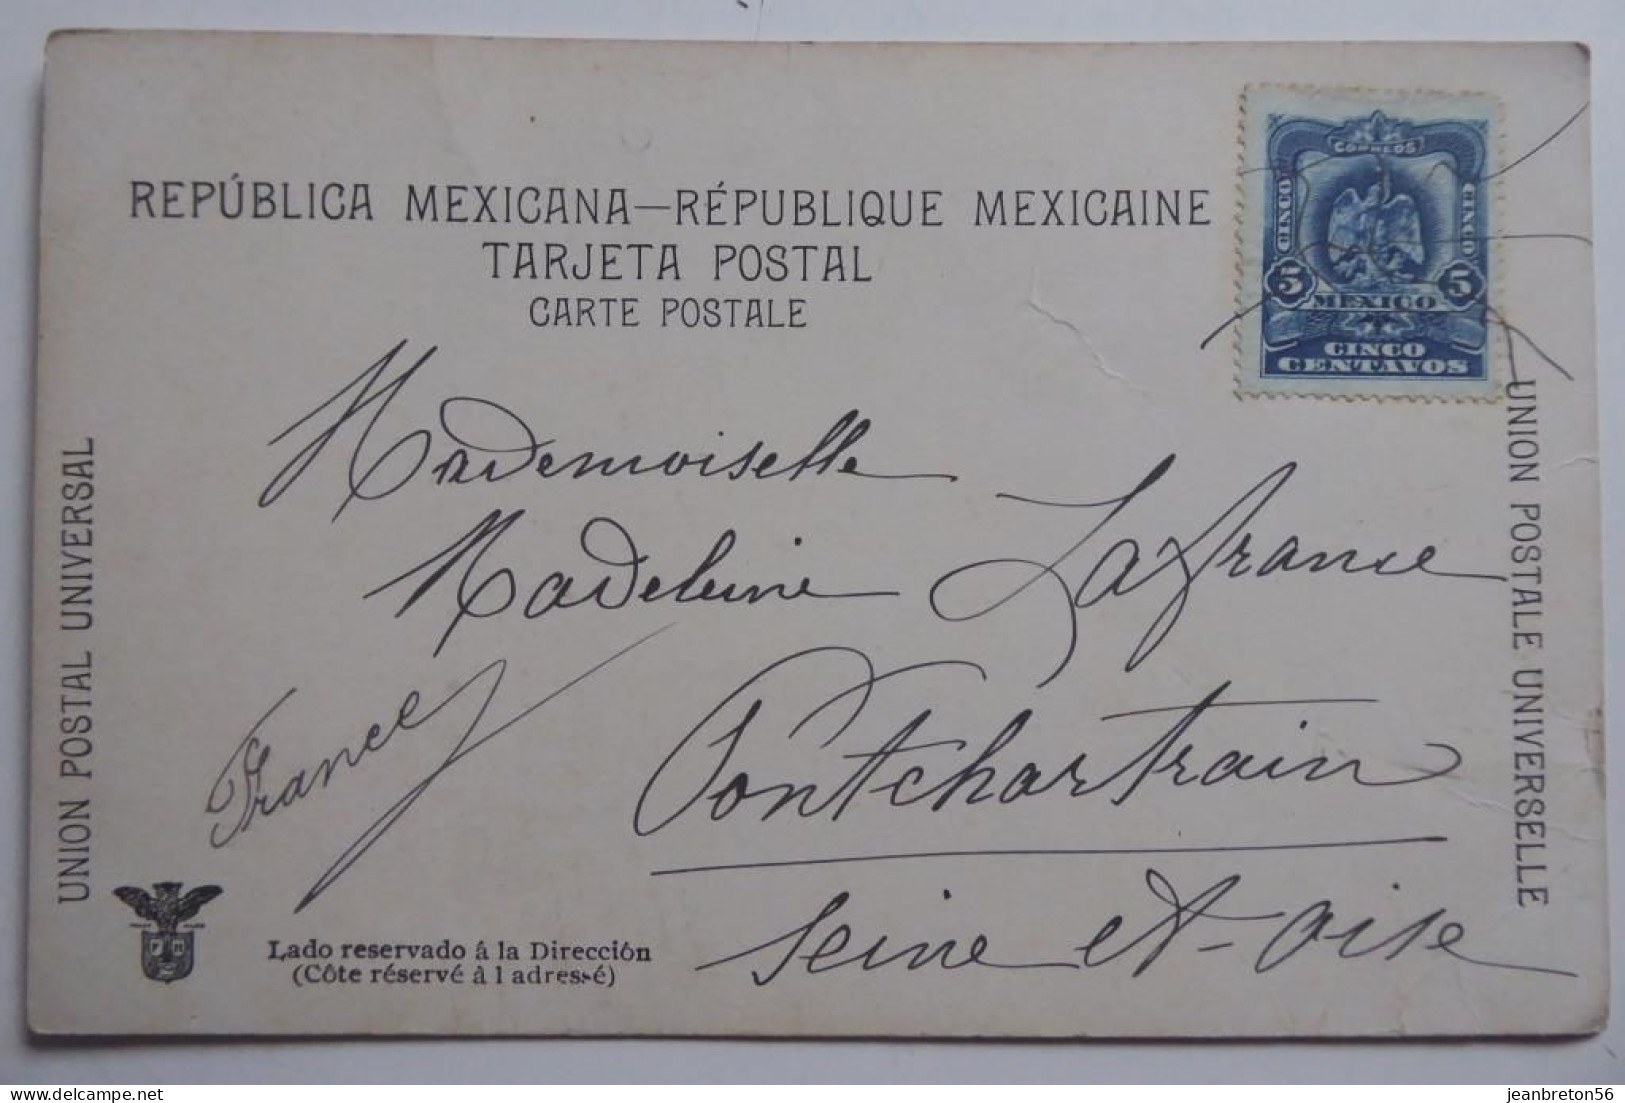 REPÚBLICA MEXICANA—RÉPUBLIQUE MEXICAINE
TARJETA POSTAL
CARTE POSTALE
CORREOS
CINCO
CINCO
5
MEXICO
5
CINCO
CENTAVOS
UNION POSTAL UNIVERSAL
UNION POSTALE UNIVERSELLE
Mademoiselle
Madeleine Lafrance
France
Pontchartrain
Seine et-Oise
Lado reservado á la Dirección
(Côte réservé â l adressé)
jeanbreton56